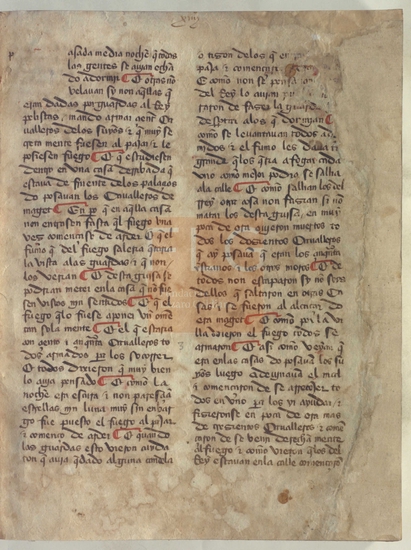 xiiij
asada media noche quando
las gentes se auian echa
do a dormir E otras no
velauan sy non aq̃llas q̃
eran dadas por guardas al Rey
polistno, mando armar cient Ca
ualleros delos suyos & que muy se
creta mente fuesen al pajar & le
posiesen fuego E q̃ estudiesen
dentro en vna casa derribada q̃
estaua de fruente delos palaçios
do posauan los Caualleros de
mager E por q̃ en aq̃lla casa
non entrasen fasta q̃l fuego vna
vez comencase de arder E q̃ el
fumo q̃ del fuego salería q̃taria
la vista alas guardas & q̃ non
los verian E desta guisa se
podrian meter en la casa q̃ no fue
sen vistos nin sentidos E q̃ el
fuego q̃lo fuese aponer vn ome
tan sola mente E el q̃ estaria
con çiento & çinquenta Caualleros to
dos armados por los socorrer
E todos dixieron q̃ muy bien
lo auia pensado E como la
noche era escura & non paresçia
estrellas nin luna muy sin enbar
go fue puesto el fuego al pajar
& començo de arder E quando
las guardas esto vieron cuyda
ron q̃ auia q̃dado alguna candela
o tizon delos q̃ el
paja & començaron
E como non se
del Rey lo auian
raron de fazer la guarda
despertar alos q̃ dormian E
como se leuantauan todos ador
midos & el fumo les daua tan
grande q̃ los q̃ria afogar cada
vno como mejor podria se salia
ala calle E como salian los del
Rey otra cosa non fazian sy no
matar los desta guisa en muy
poca de ora ouieron muertos to
dos los dozientos Caualleros
q̃ ay posauan q̃ eran los
estauan & los otros moros E de
todos non escaparon sy no seys
dellos q̃ saltaron en otras ca
sas & se fueron al alcaçar do
era mager E como por la vi
lla vieron el fuego todos se
armaron E asi como veyan q̃
era enlas casas do posauan los su
yos luego adeuinauan el mal
& començaron de se apellidar to
dos en vno por los yr ayudar &
fizieronse en poca de ora mas
de trezientos Caualleros & comen
çaron de se venir derecha mente
al fuego & como vieron q̃ los del
Rey estauan enla calle començaron